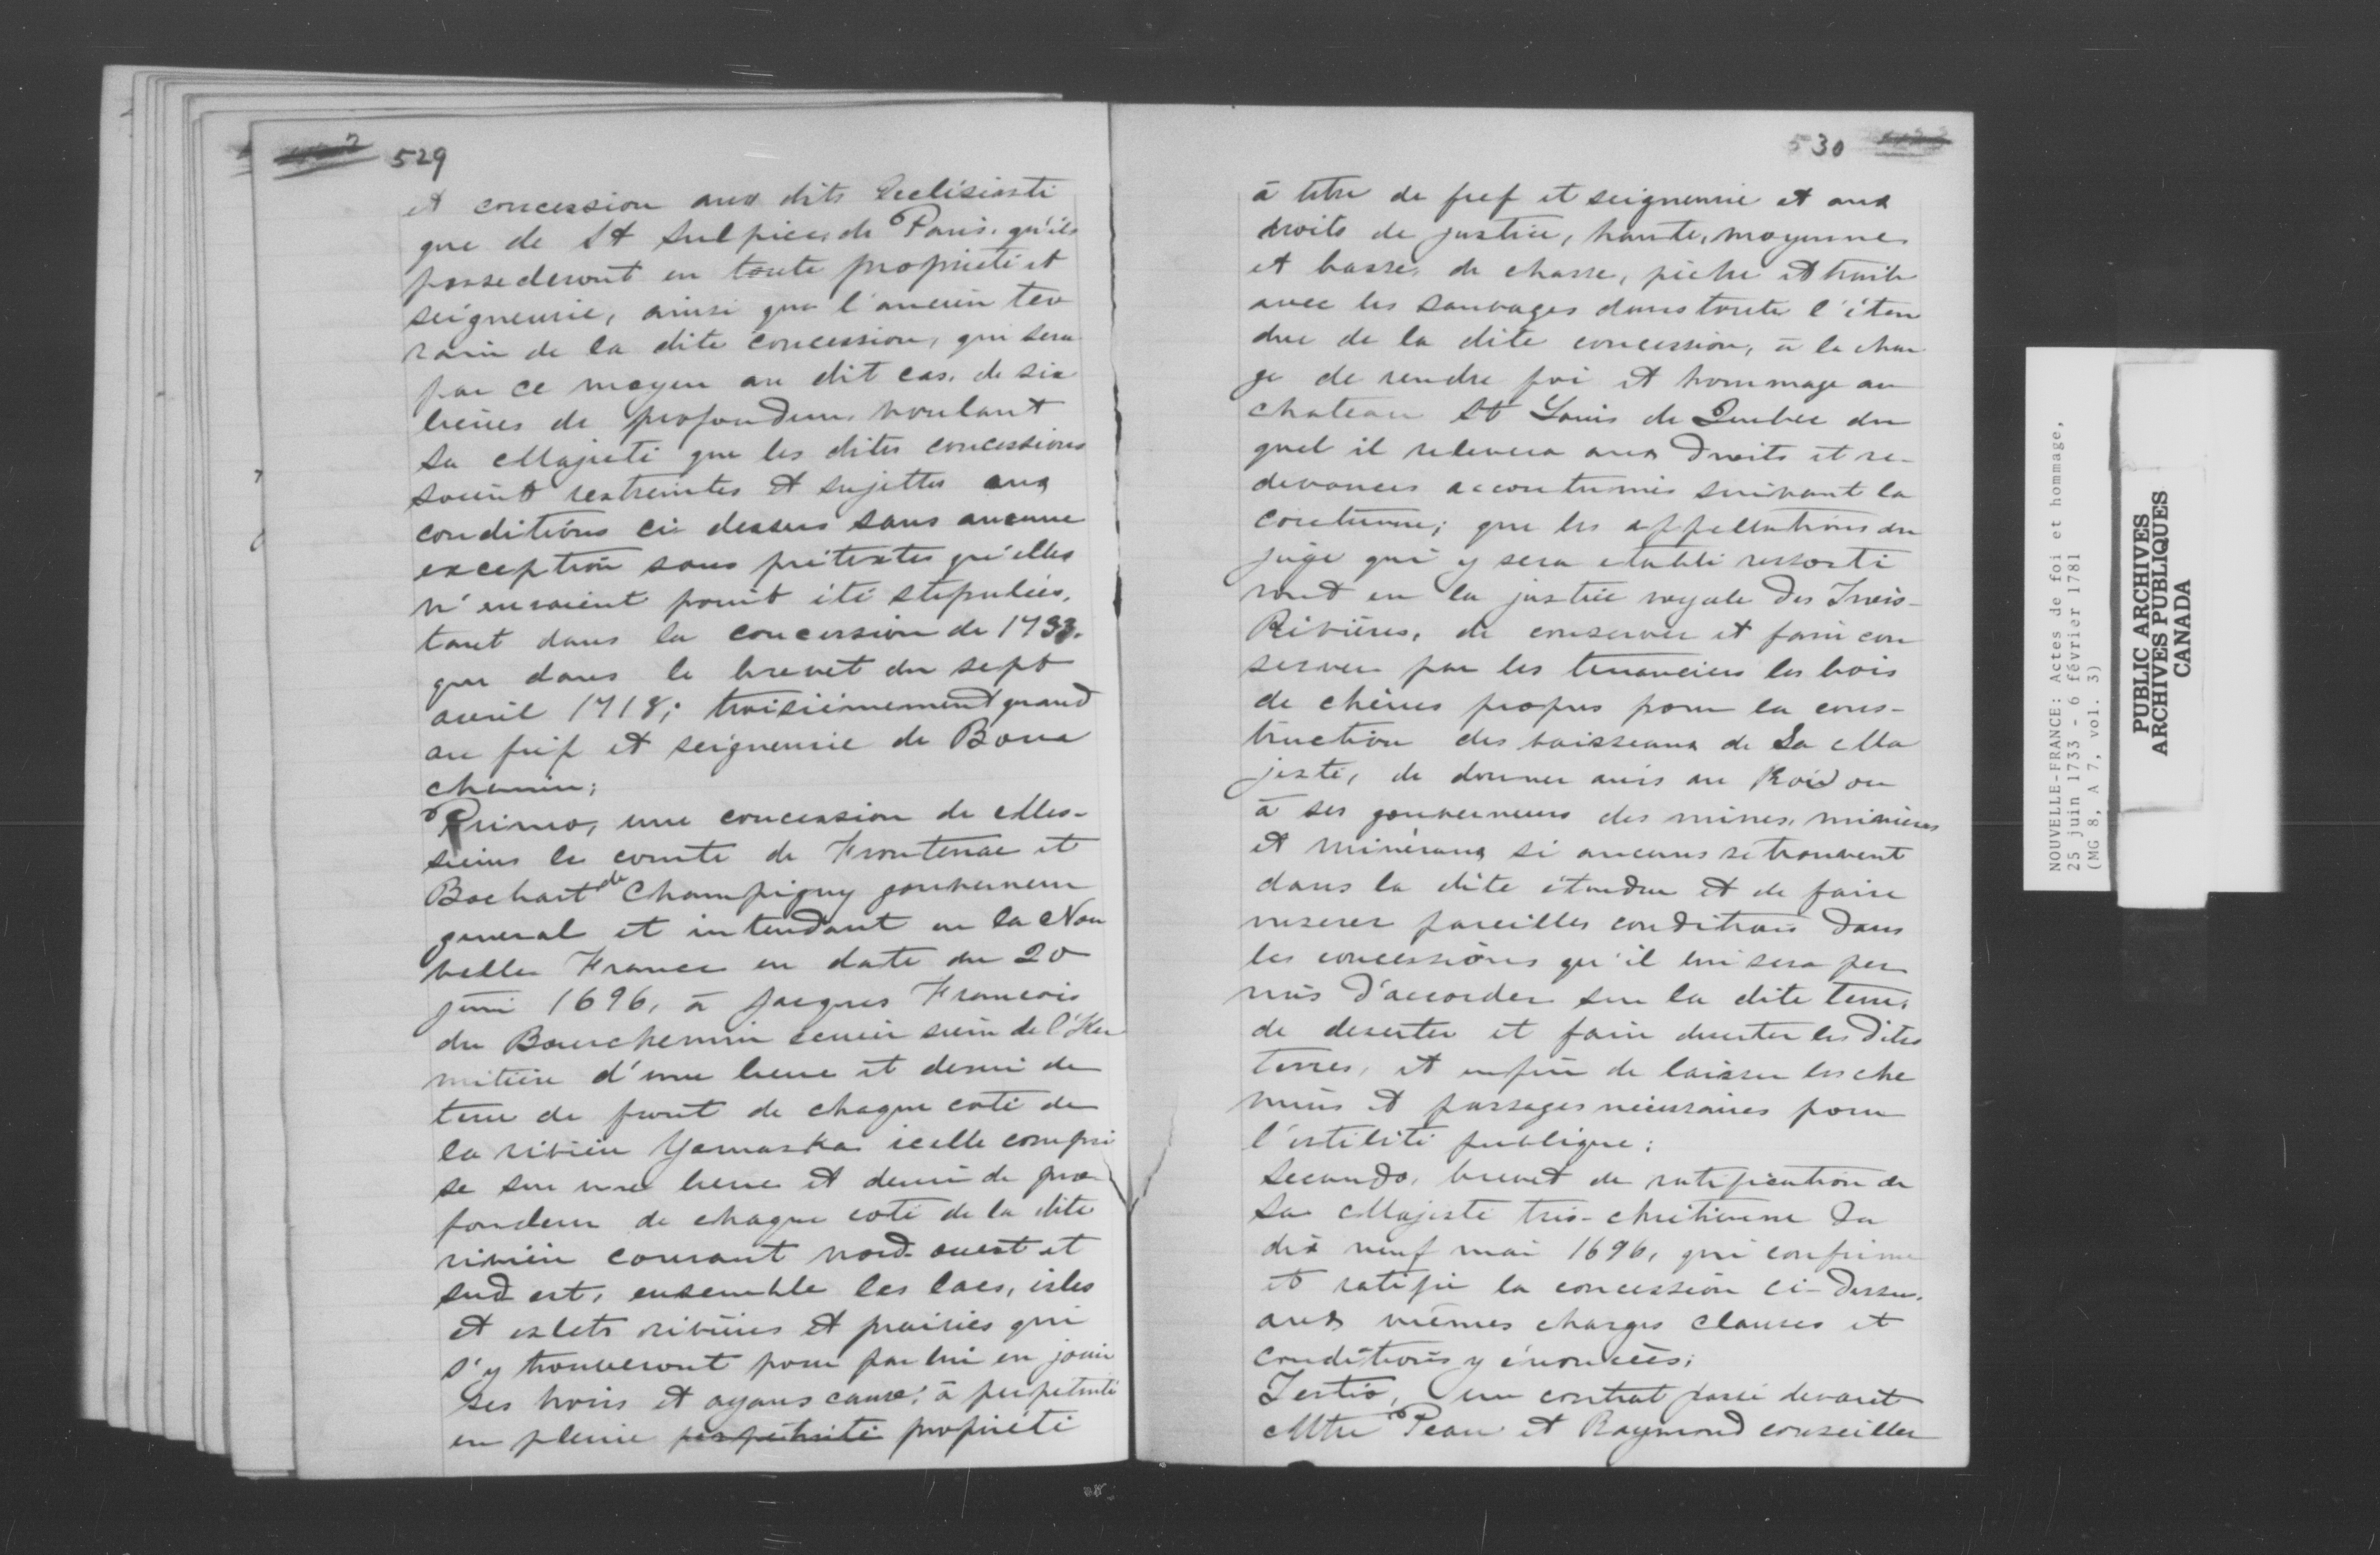 529
et concession aux dits Ecclésiasti
que de St Sulpice de Paris. qu'ils
possederont en toute propriété et
seigneurie, ainsi que l'ancien ter
rain de la dite concession, qui sera
par ce moyen au dit cas. de six
lieues de profondeur voulant
Sa Majesté que les dites concessions
soient restreintes et sujettes aux
conditions ci dessus sans aucune
exception sous prétextes qu'elles
n'auraient point été stipulées,
tant dans la concession de 1733.
que dans le brevet du sept
avril 1718; troisièmement quand
au fief et seigneurie de Bour
chemin;
Primo, une concession de Mes-
sieurs le comte de Frontenac et
Bochart de Champigny gouverneur
general et intendant en la Nou
velle France en date du 20
juin 1696, à Jacques Francois
du Bourchemin ecuier sieur de l'Her
mitière d'une lieue et demi de
terre de front de chaque coté de
la rivière Yamaska icelle compri
se sur une lieue et demi de pro
fondeur de chaque coté de la dite
rivière courant nord-ouest et
sud est, ensemble les lacs, isles
et islets rivières et prairies qui
s'y trouveront pour par lui en jouir
ses hoirs et ayans cause, à perpetuité
en pleine perpétuité propriété
530
à titre de fief et seigneurie et aux
droits de justice, haute, moyenne
et basse, de chasse, pêche et traite
avec les sauvages dans toute l'éten
due de la dite concession, à la char
ge de rendre foi et hommage au
chateau St Louis de Quebec du
quel il relevera aux droits et re-
devances accoutumés suivant la
coutume; que les appellations du
juge qui y sera etabli ressorti
ront en la justice royale des Trois-
Rivières, de conserver et faire con
server par les tenanciers les bois
de chênes propres pour la cons-
truction des vaisseaux de Sa Ma
jesté, de donner avis au Roi ou
à ses gouverneurs des mines, minières
et minéraux si aucuns se trouvent
dans la dite étendue et de faire
inserer pareilles conditions dans
les concessions qu'il lui sera per
mis d'accorder sur la dite terre,
de deserter et faire deserter les dites
terres, et enfin de laisser les che
mins et passages nécessaires pour
l'utilité publique;
Secundo, brevet de ratification de
Sa Majesté très-chrétienne du
dix neuf mai 1696, qui confirme
et ratifie la concession ci-dessus.
aux mêmes charges clauses et
conditions y énoncées;
Tertio, un contrat passé devant
Mtre Pean et Raymond conseiller
NOUVELLE-FRANCE: Actes de foi et hommage,
25 juin 1733 - 6 février 1781
(MG 8, A 7, vol. 3)
PUBLIC ARCHIVES
ARCHIVES PUBLIQUES
CANADA